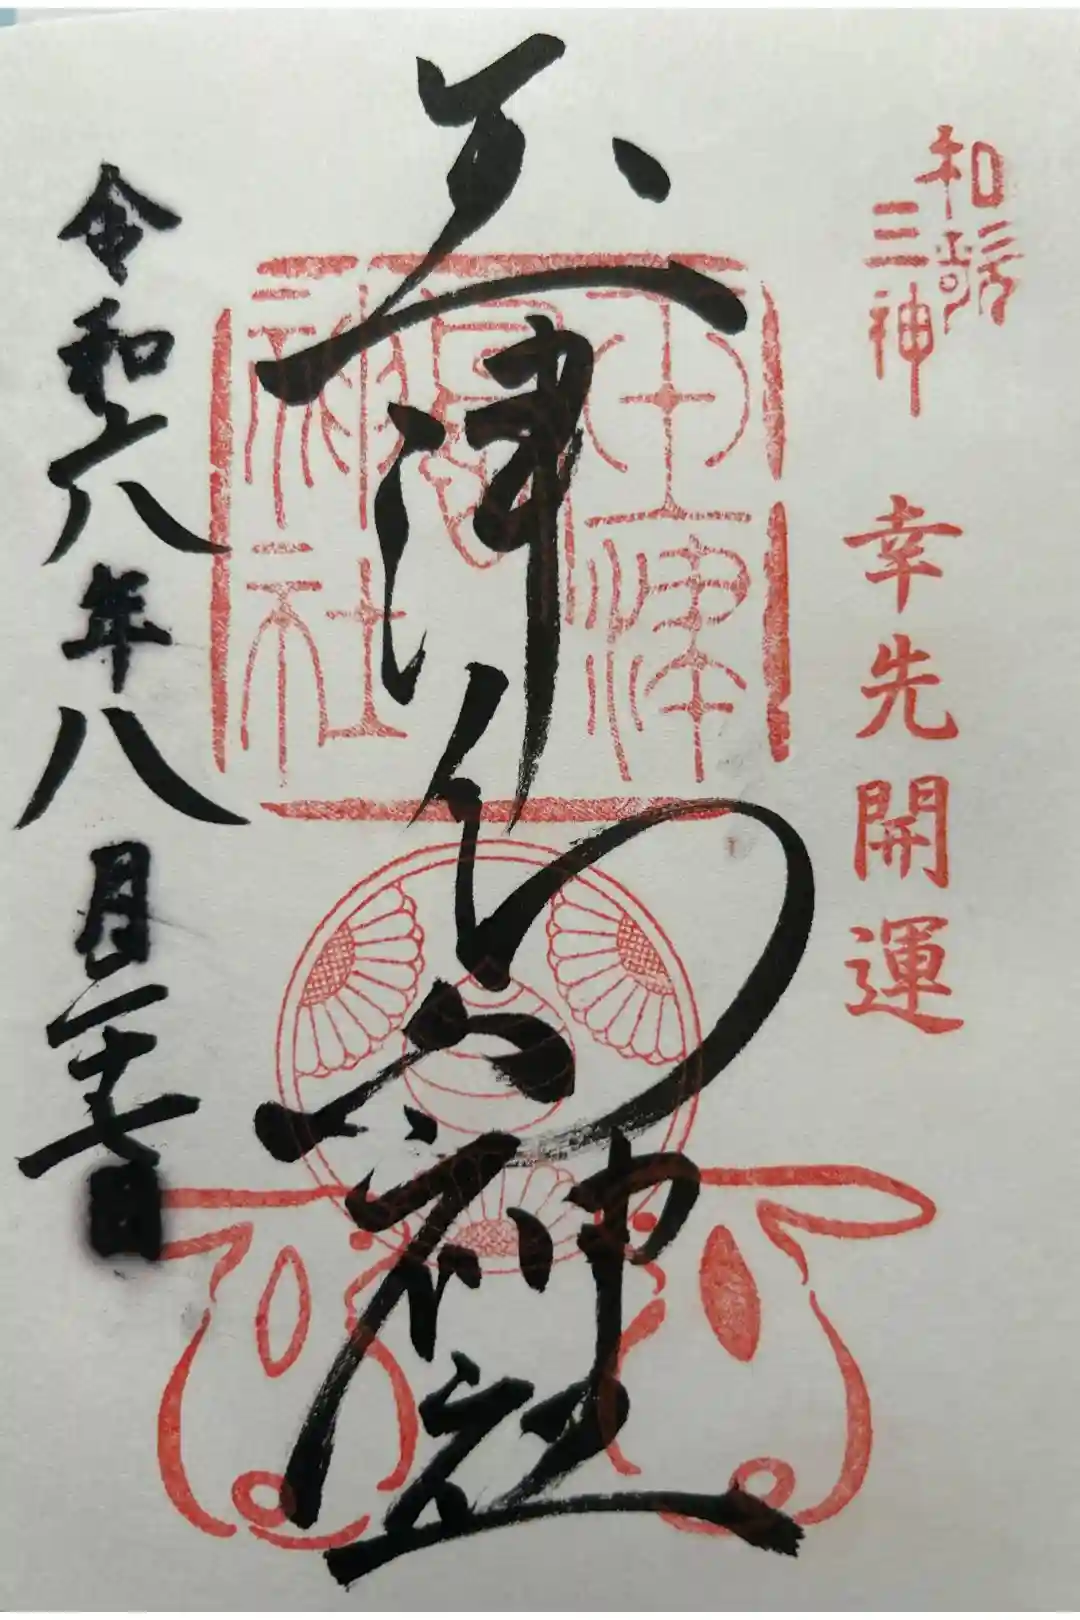 和歌三神
幸先開運
玉津島神社
玉津島神社
令和六年八月二十七日